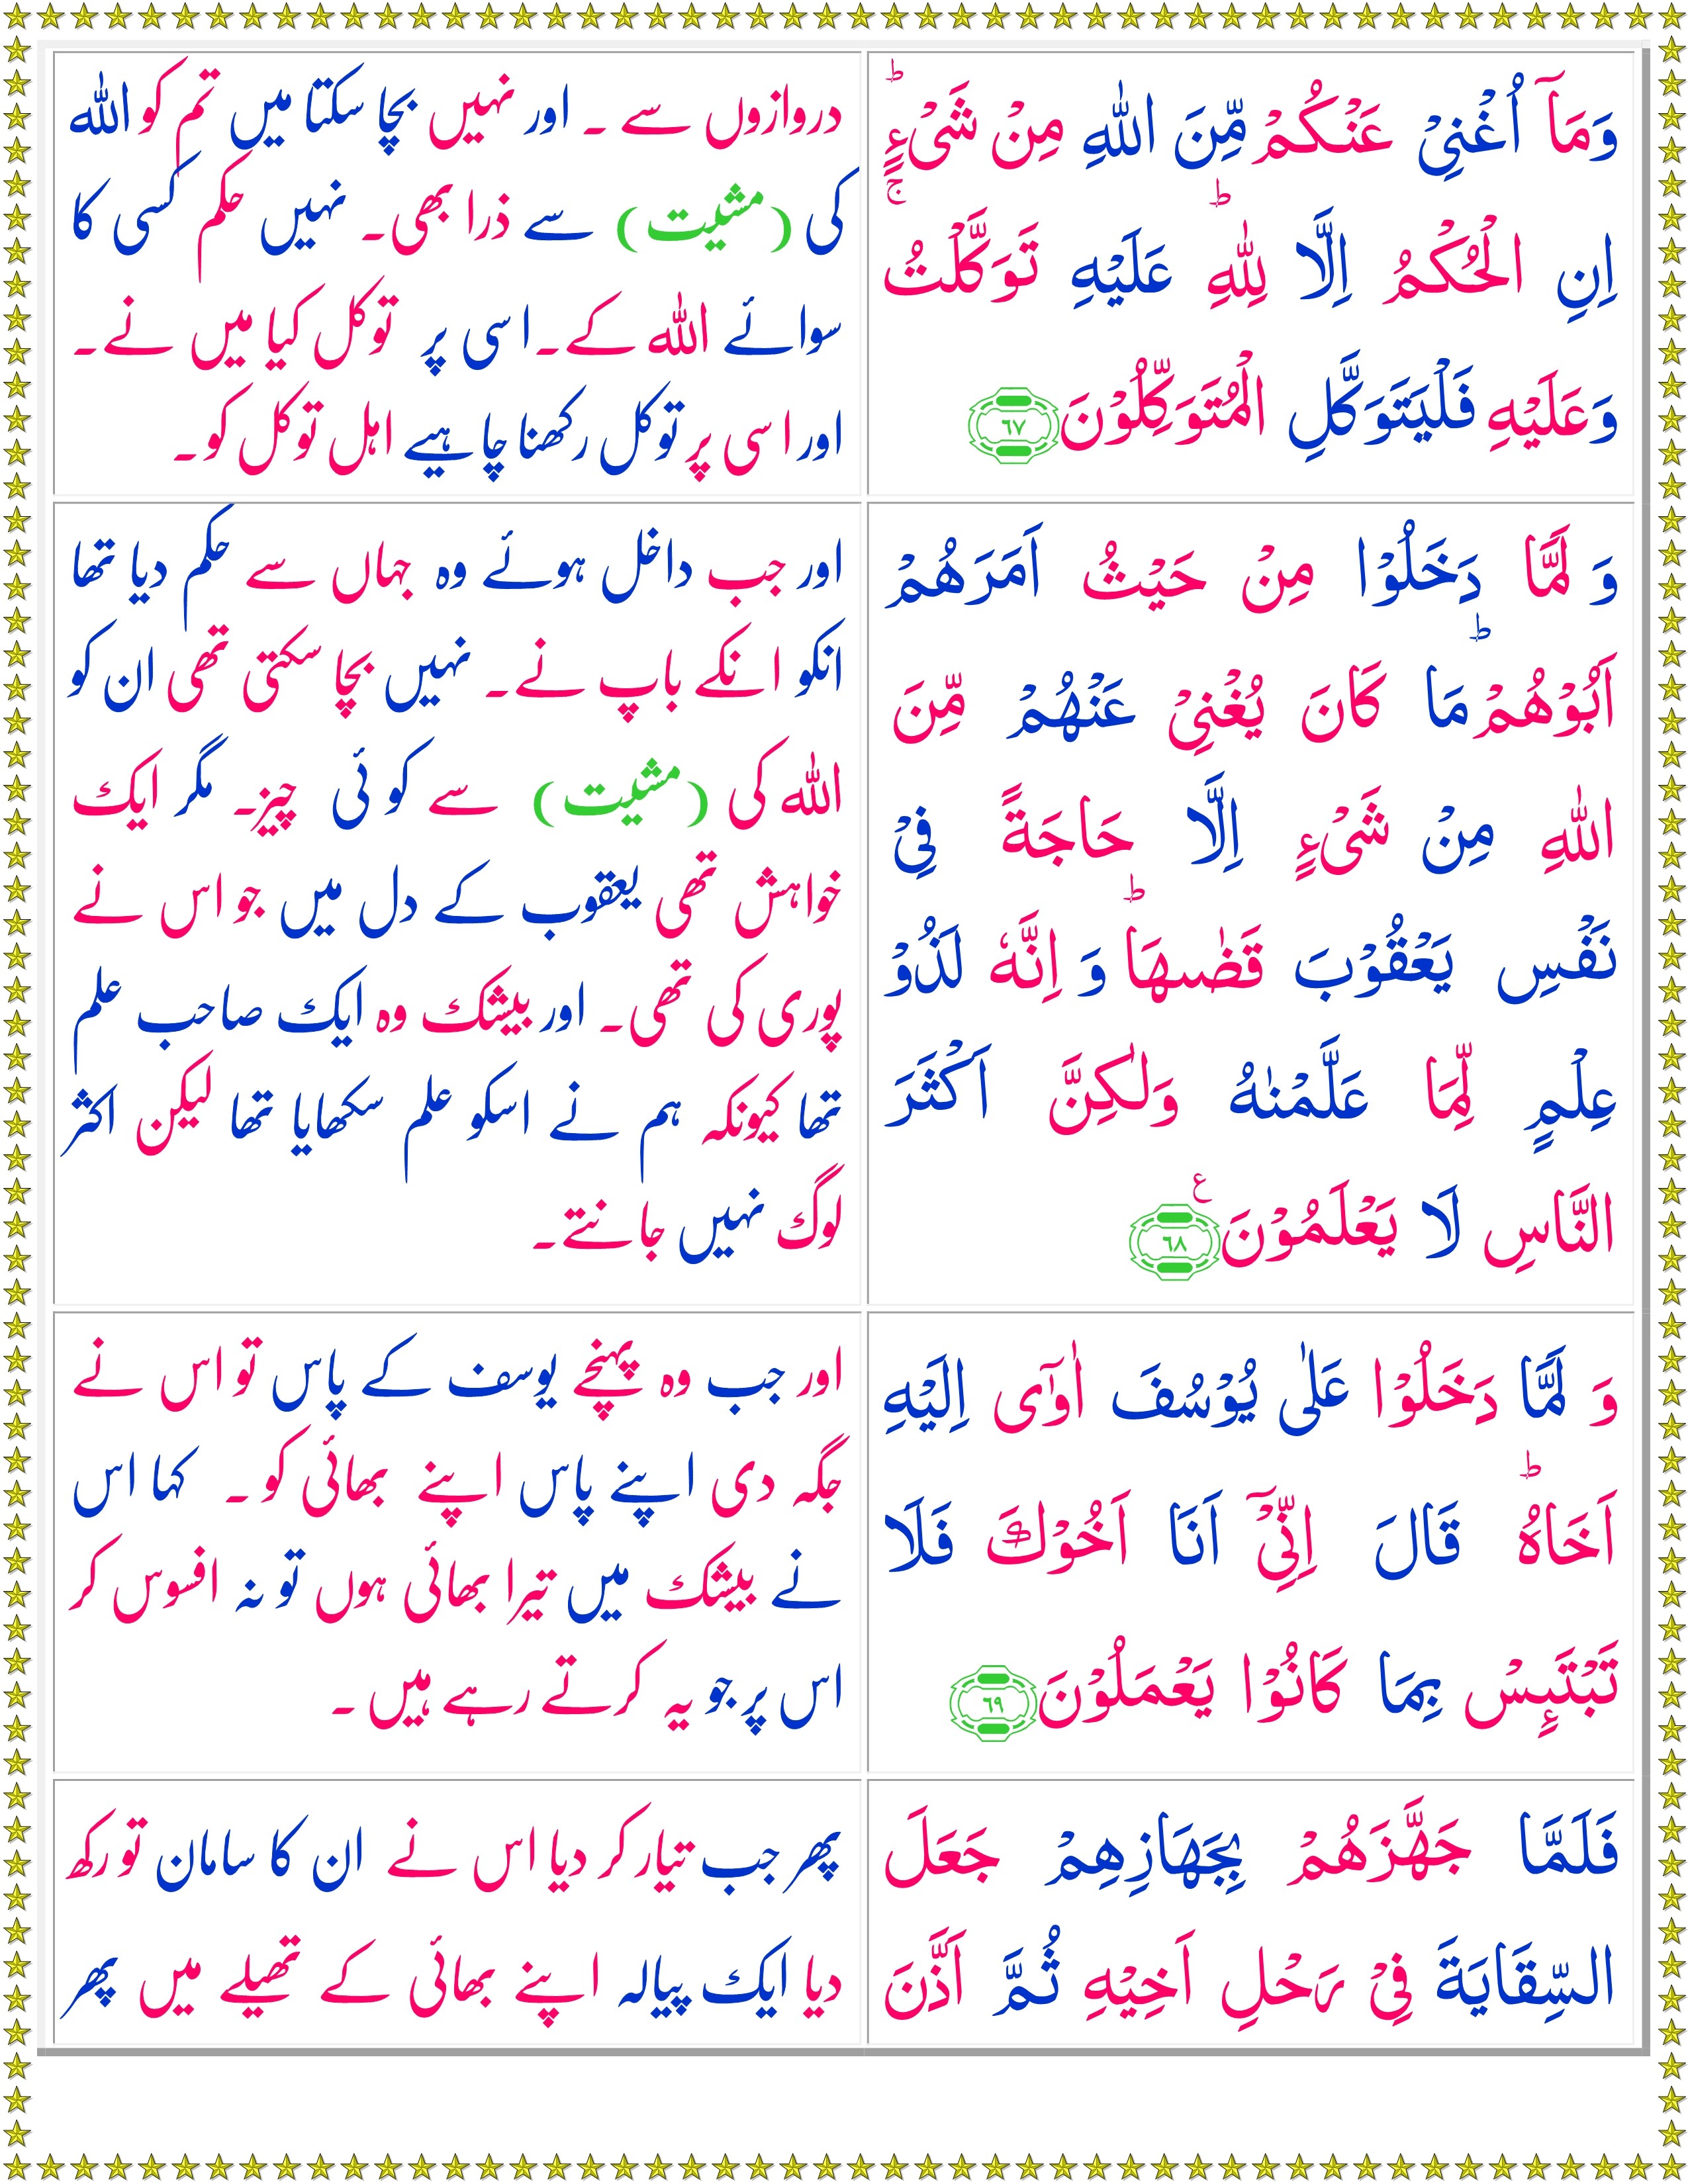 وَمَاۤ اُغْنِىْ عَنْكُمْ مِّنَ اللّٰهِ مِنْ شَىْءٍ ؕ
اِنِ الْحُكْمُ اِلَّا لِلّٰهِ ؕ عَلَيْهِ تَوَكَّلْتُ ۚ
وَعَلَيْهِ فَلْيَتَوَكَّلِ الْمُتَوَكِّلُوْنَ ٦٧
دروازوں سے ۔ اور نہیں بچا سکتا میں تم کو اللہ
کی (مشیت) سے ذرا بھی۔ نہیں حکم کسی کا
سوائے اللہ کے۔ اسی پر توکل کیا میں نے۔
اور اسی پر توکل رکھنا چاہیے اہل توکل کو۔
وَ لَمَّا دَخَلُوْا مِنْ حَيْثُ اَمَرَهُمْ
اَبُوْهُمْ ؕ مَا كَانَ يُغْنِىْ عَنْهُمْ مِّنَ
اللّٰهِ مِنْ شَىْءٍ اِلَّا حَاجَةً فِىْ
نَفْسِ يَعْقُوْبَ قَضٰٮهَا ؕ وَ اِنَّهٗ لَذُوْ
عِلْمٍ لِّمَا عَلَّمْنٰهُ وَلٰكِنَّ اَكْثَرَ
النَّاسِ لَا يَعْلَمُوْنَ ع ٦٨
اور جب داخل ہوئے وہ جہاں سے حکم دیا تھا
انکو انکے باپ نے۔ نہیں بچا سکتی تھی ان کو
اللہ کی (مشیت) سے کوئی چیز۔ مگر ایک
خواہش تھی یعقوب کے دل میں جو اس نے
پوری کی تھی۔ اور بیشک وہ ایک صاحب علم
تھا کیونکہ ہم نے اسکو علم سکھایا تھا لیکن اکثر
لوگ نہیں جانتے۔
وَ لَمَّا دَخَلُوْا عَلٰى يُوْسُفَ اٰوٰٓى اِلَيْهِ
اَخَاهُ ؕ قَالَ اِنِّىْۤ اَنَا اَخُوْكَ فَلَا
تَبْتَٮِٕسْ بِمَا كَانُوْا يَعْمَلُوْنَ ٦٩
اور جب وہ پہنچے یوسف کے پاس تو اس نے
جگہ دی اپنے پاس اپنے بھائی کو۔ کہا اس
نے بیشک میں تیرا بھائی ہوں تو نہ افسوس کر
اس پر جو یہ کرتے رہے ہیں ۔
فَلَمَّا جَهَّزَهُمْ بِجَهَازِهِمْ جَعَلَ
السِّقَايَةَ فِىْ رَحْلِ اَخِيْهِ ثُمَّ اَذَّنَ
پھر جب تیار کر دیا اس نے ان کا سامان تو رکھ
دیا ایک پیالہ اپنے بھائی کے تھیلے میں پھر